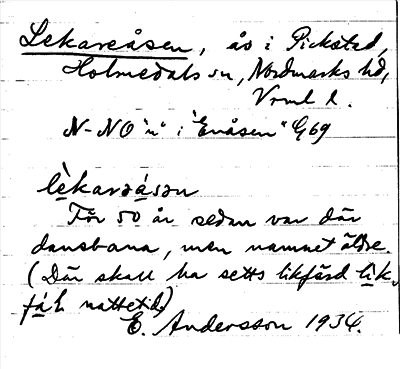 Lekareåsen, ås i Pickstad,
Holmedals sn, Nordmarks hd,
Vrml l.
N-NO "n" i "Enåsen" G69
lèkaraåsan
För 50 år sedan var där
dansbana, men namnet äldre.
(Där skall ha setts likfärd lik-
få̀ḷ nattetid.)
E. Andersson 1934.